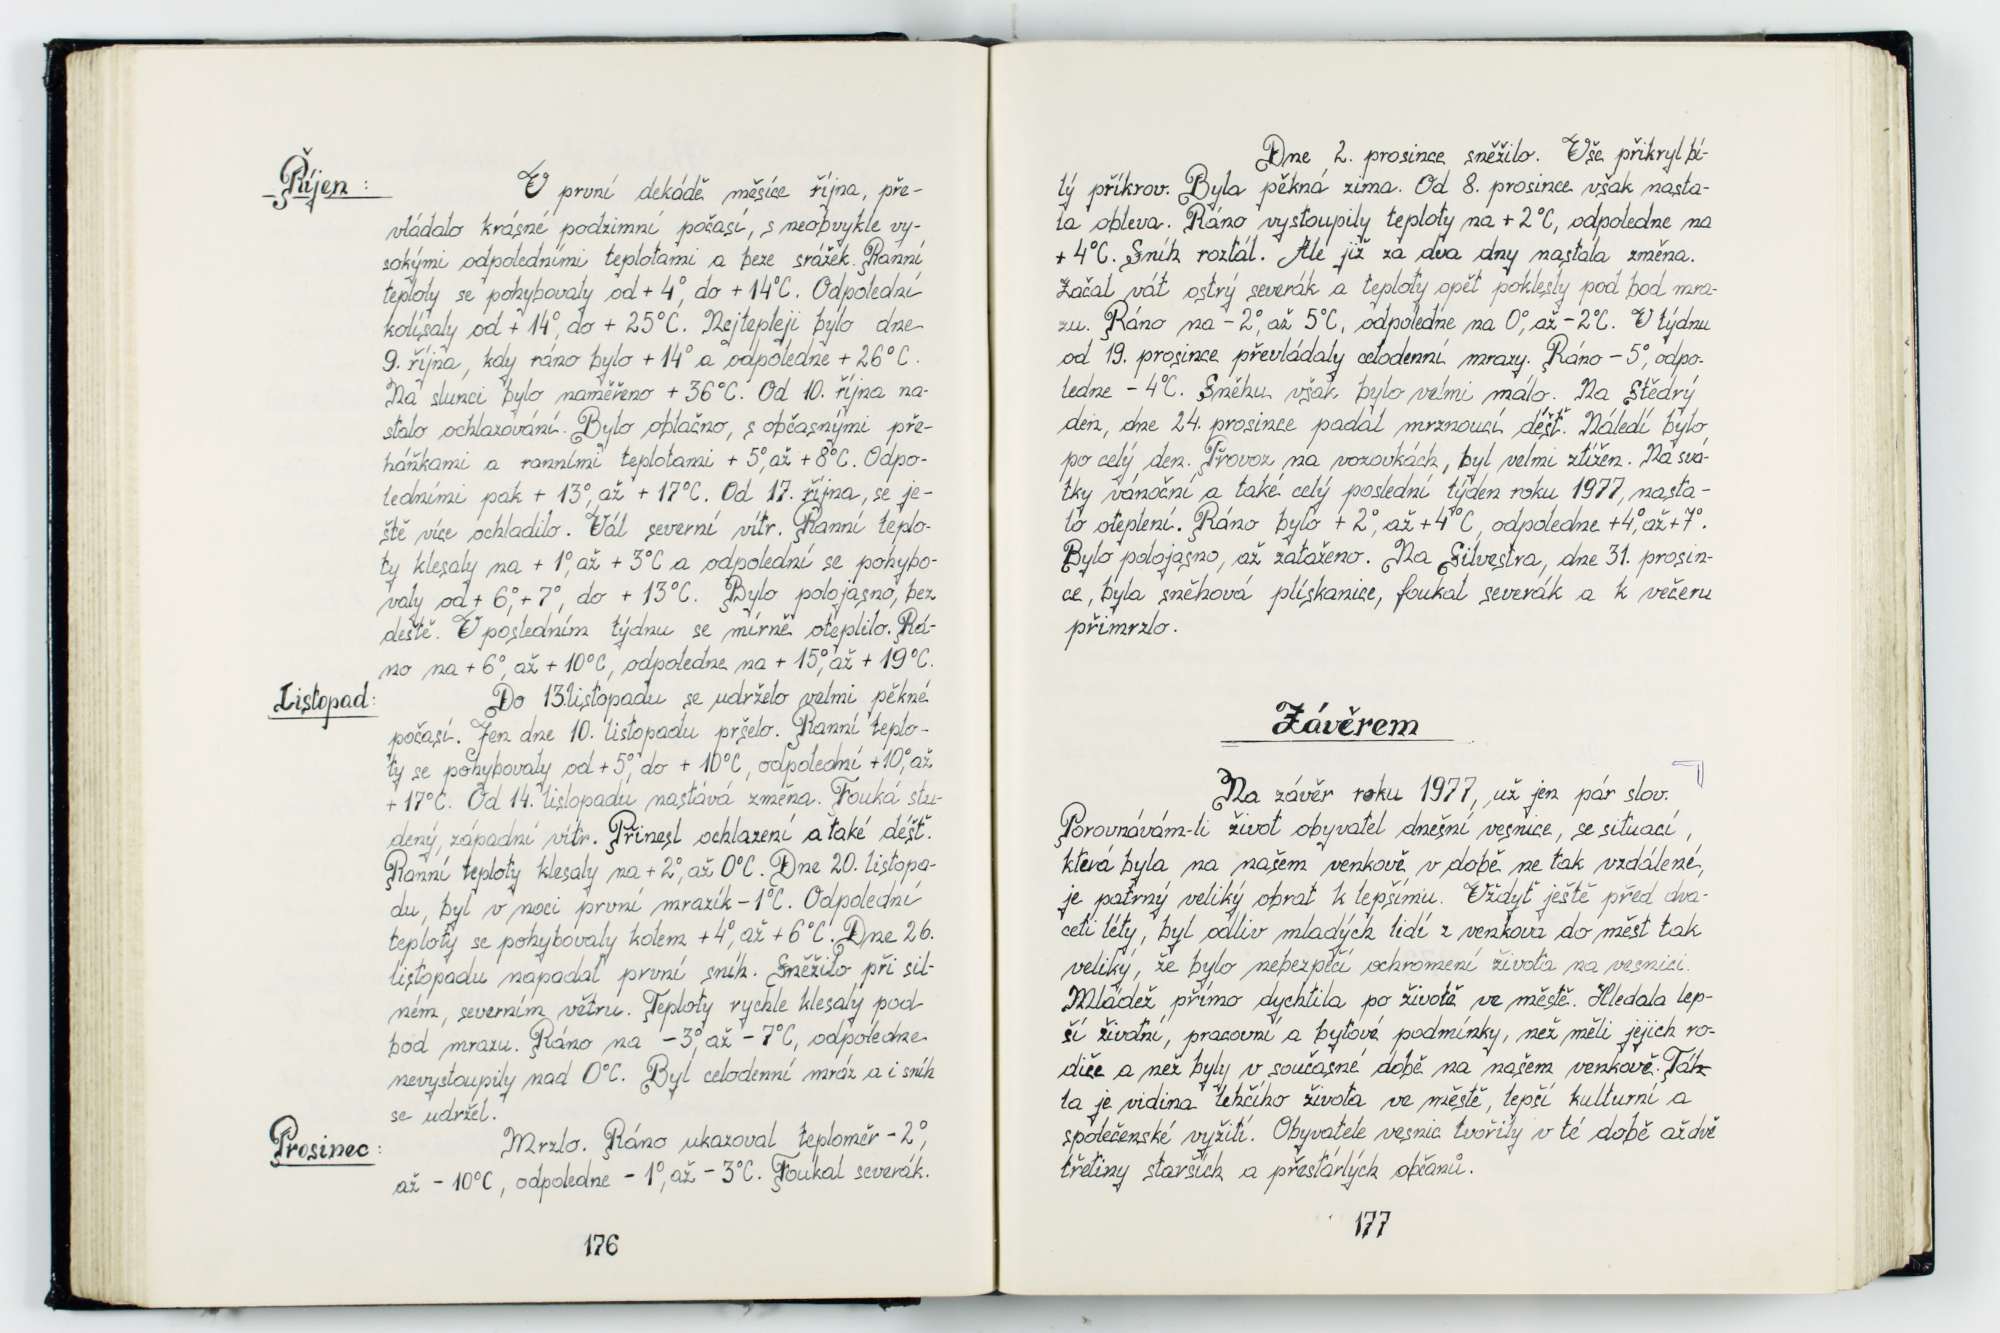 Říjen :
V první dekádě měsíce října, pře-
vládalo krásné podzimní počasí, s neobvykle vy-
sokými odpoledními teplotami a beze srážek. Ranní
teploty se pohybovaly od + 4°, do + 14°C. Odpolední
kolísaly od + 14°, do + 25°C. Nejtepleji bylo dne
9. října, kdy ráno bylo + 14° a odpoledne + 26°C.
Na slunci bylo naměřeno + 36°C. Od 10. října na-
stalo ochlazování. Bylo oblačno, s občasnými pře-
háňkami a ranními teplotami + 5°, až + 8°C. Odpo-
ledními pak + 13°, až + 17°C. Od 17. října, se je-
ště více ochladilo. Vál severní vítr. Ranní teplo-
ty klesaly na + 1°, až + 3°C a odpolední se pohybo-
valy od + 6°, + 7°, do + 13°C. Bylo polojasno, bez
deště. V posledním týdnu se mírně oteplilo. Rá-
no na + 6°, až + 10°C, odpoledne na + 15°, až + 19°C.
Listopad :
Do 13.listopadu se udrželo velmi pěkné
počasí. Jen dne 10. listopadu pršelo. Ranní teplo-
ty se pohybovaly od + 5°, do + 10°C, odpolední +10°, až
+ 17°C. Od 14. listopadu nastává změna. Fouká stu-
dený, západní vítr. Přinesl ochlazení a také déšť.
Ranní teploty klesaly na + 2°, až 0°C. Dne 20. listopa-
du, byl v noci první mrazík - 1°C. Odpolední
teploty se pohybovaly kolem + 4°, až + 6°C. Dne 26.
listopadu napadal první sníh. Sněžilo při sil-
ném, severním větru. Teploty rychle klesaly pod
bod mrazu. Ráno na - 3°, až - 7°C, odpoledne
nevystoupily nad 0°C. Byl celodenní mráz a i sníh
se udržel.
Prosinec :
Mrzlo. Ráno ukazoval teploměr - 2°,
až - 10°C, odpoledne - 1°, až - 3°C. Foukal severák.
176
Dne 2. prosince sněžilo. Vše přikryl bí-
lý příkrov. Byla pěkná zima. Od 8. prosince však nasta-
la obleva. Ráno vystoupily teploty na + 2°C, odpoledne na
+ 4°C. Sníh roztál. Ale již za dva dny nastala změna.
Začal vát ostrý severák a teploty opět poklesly pod bod mra-
zu. Ráno na - 2°, až 5°C, odpoledne na 0°, až - 2°C. V týdnu
od 19. prosince převládaly celodenní mrazy. Ráno - 5°, odpo-
ledne - 4°C. Sněhu však bylo velmi málo. Na Štědrý
den, dne 24. prosince padal mrznoucí déšť. Náledí bylo
po celý den. Provoz na vozovkách, byl velmi ztížen. Na svá-
tky vánoční a také celý poslední týden roku 1977, nasta-
lo oteplení. Ráno bylo + 2°, až + 4°C, odpoledne +4°, až +7°.
Bylo polojasno, až zataženo. Na Silvestra, dne 31. prosin-
ce, byla sněhová plískanice, foukal severák a k večeru
přimrzlo.
Závěrem
Na závěr roku 1977, už jen pár slov.
Porovnávám-li život obyvatel dnešní vesnice, se situací,
která byla na našem venkově v době ne tak vzdálené,
je patrný veliký obrat k lepšímu. Vždyť ještě před dva-
ceti léty, byl odliv mladých lidí z venkova do měst tak
veliký, že bylo nebezpečí ochromení života na vesnici.
Mládež, přímo dychtila po životě ve městě. Hledala lep-
ší životní, pracovní a bytové podmínky, než měli jejich ro-
diče a než byly v současné době na našem venkově. Táh-
la je vidina lehčího života ve městě, lepší kulturní a
společenské vyžití. Obyvatele vesnic tvořily v té době až dvě
třetiny starších a přestárlých občanů.
177